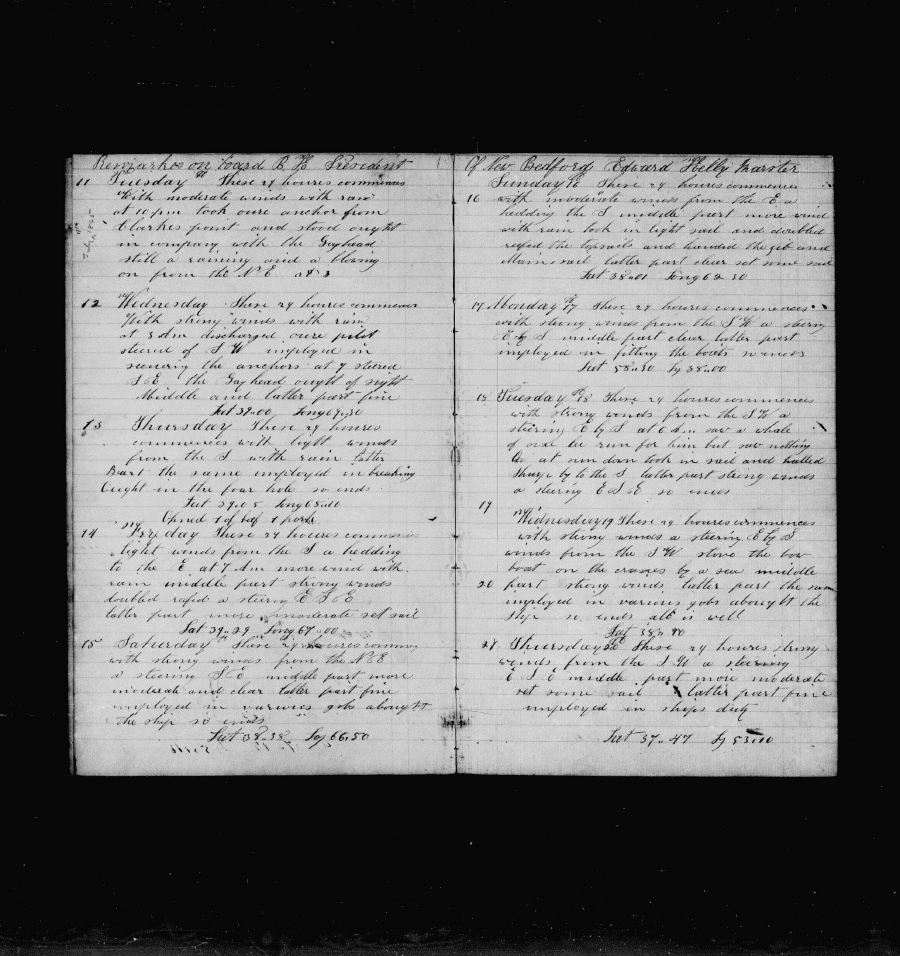 Remarks on board B President
11 Tuesday These 24 houres commences
With moderate winds with rain
at 10 pm took oure anchor from
Clarkes point and stood ought
in company with the Gayhead
still a raining and a blowing
on from the N E at 3
12 Wednesday These 24 houres commences
With strong winds with rain
at 8 Am discharged oure pilot
steered of S W imployed in
secureing the anchors at 7 steered
S E the Gayhead ought of sight
Middle and latter part fine
Lat 39.00 Long 69.30
13 Thursday These 24 houres
commences with light winds
from the S with rain latter
Part the same imployed in breaking
Ought in the four hole so ends
Lat 39.05 Long 68.10
Opned 1 of beef 1 pork
14 Fryday These 24 houres commences
light winds from the S a hedding
to the E at 7 Am more wind with
rain middle part strong winds
doubled refd a steering E S E
latter part more moderate set sail
Lat 39.29 Long 67.00
15 Saturday These 24 houres commences
with strong winds from the N E
a steering S E middle part more
moderate and clear latter part fine
imployed in various jobs abought
the ship so ends
Lat 38.38 Log 66.50
Of New Bedford Edward Kelly Marster
Sunday 16 These 24 houres commences
16 with moderate winds from the E a
hedding the S middle part more wind
with rain took in light sail and doubled
refed the topsails and handed the jib and
Main sail latter part clear set some sail
Lat 38.01 Long 62 30
17 Monday 17 These 24 houres commences
with strong winds from the S W a steering
E by S middle part clear latter part
imployed in fitting the boats so ends
Lat 58.30 Lg 58.00
18 Tuesday 18 These 24 houres commences
with strong winds from the S W a
steering E by S at 6 Am saw a whale
of oure lee run for him but saw nothing
at sun down took in sail and hulled
Sharp by to the S latter part strong winds
a steering E S E so ends
19
Wednesday 19 These 24 houres commences
with strong winds a steering E by S
winds from the S W stove the bow
boat on the cranes by a sea middle
20 part strong winds latter part the same
imployed in various jobs abought the
ship so ends all is well
Lat 38.40
21 Thursday 20 These 24 houres strong
winds from the S W a steering
E S E middle part more moderate
set some sail latter part fine
imployed in ships duty
Lat 37.47 Lg 53.10